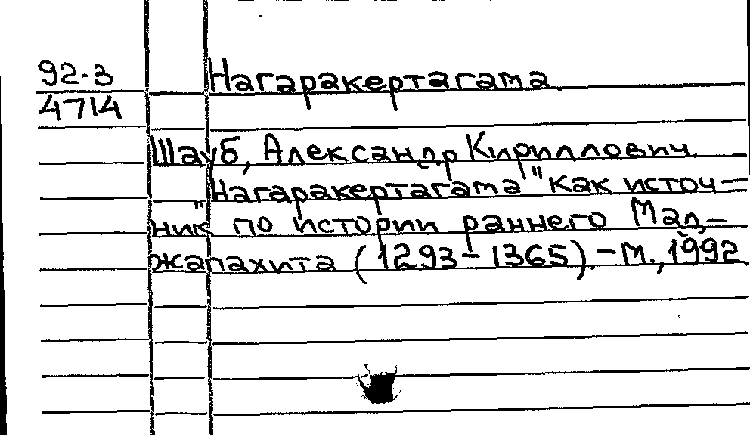 92-3
4714
Нагаракертагама
Шауб, Александр Кириллович.
"Нагаракертагама" как источ-
ник по истории раннего Мад-
жапахита (1293-1365). - М., 1992